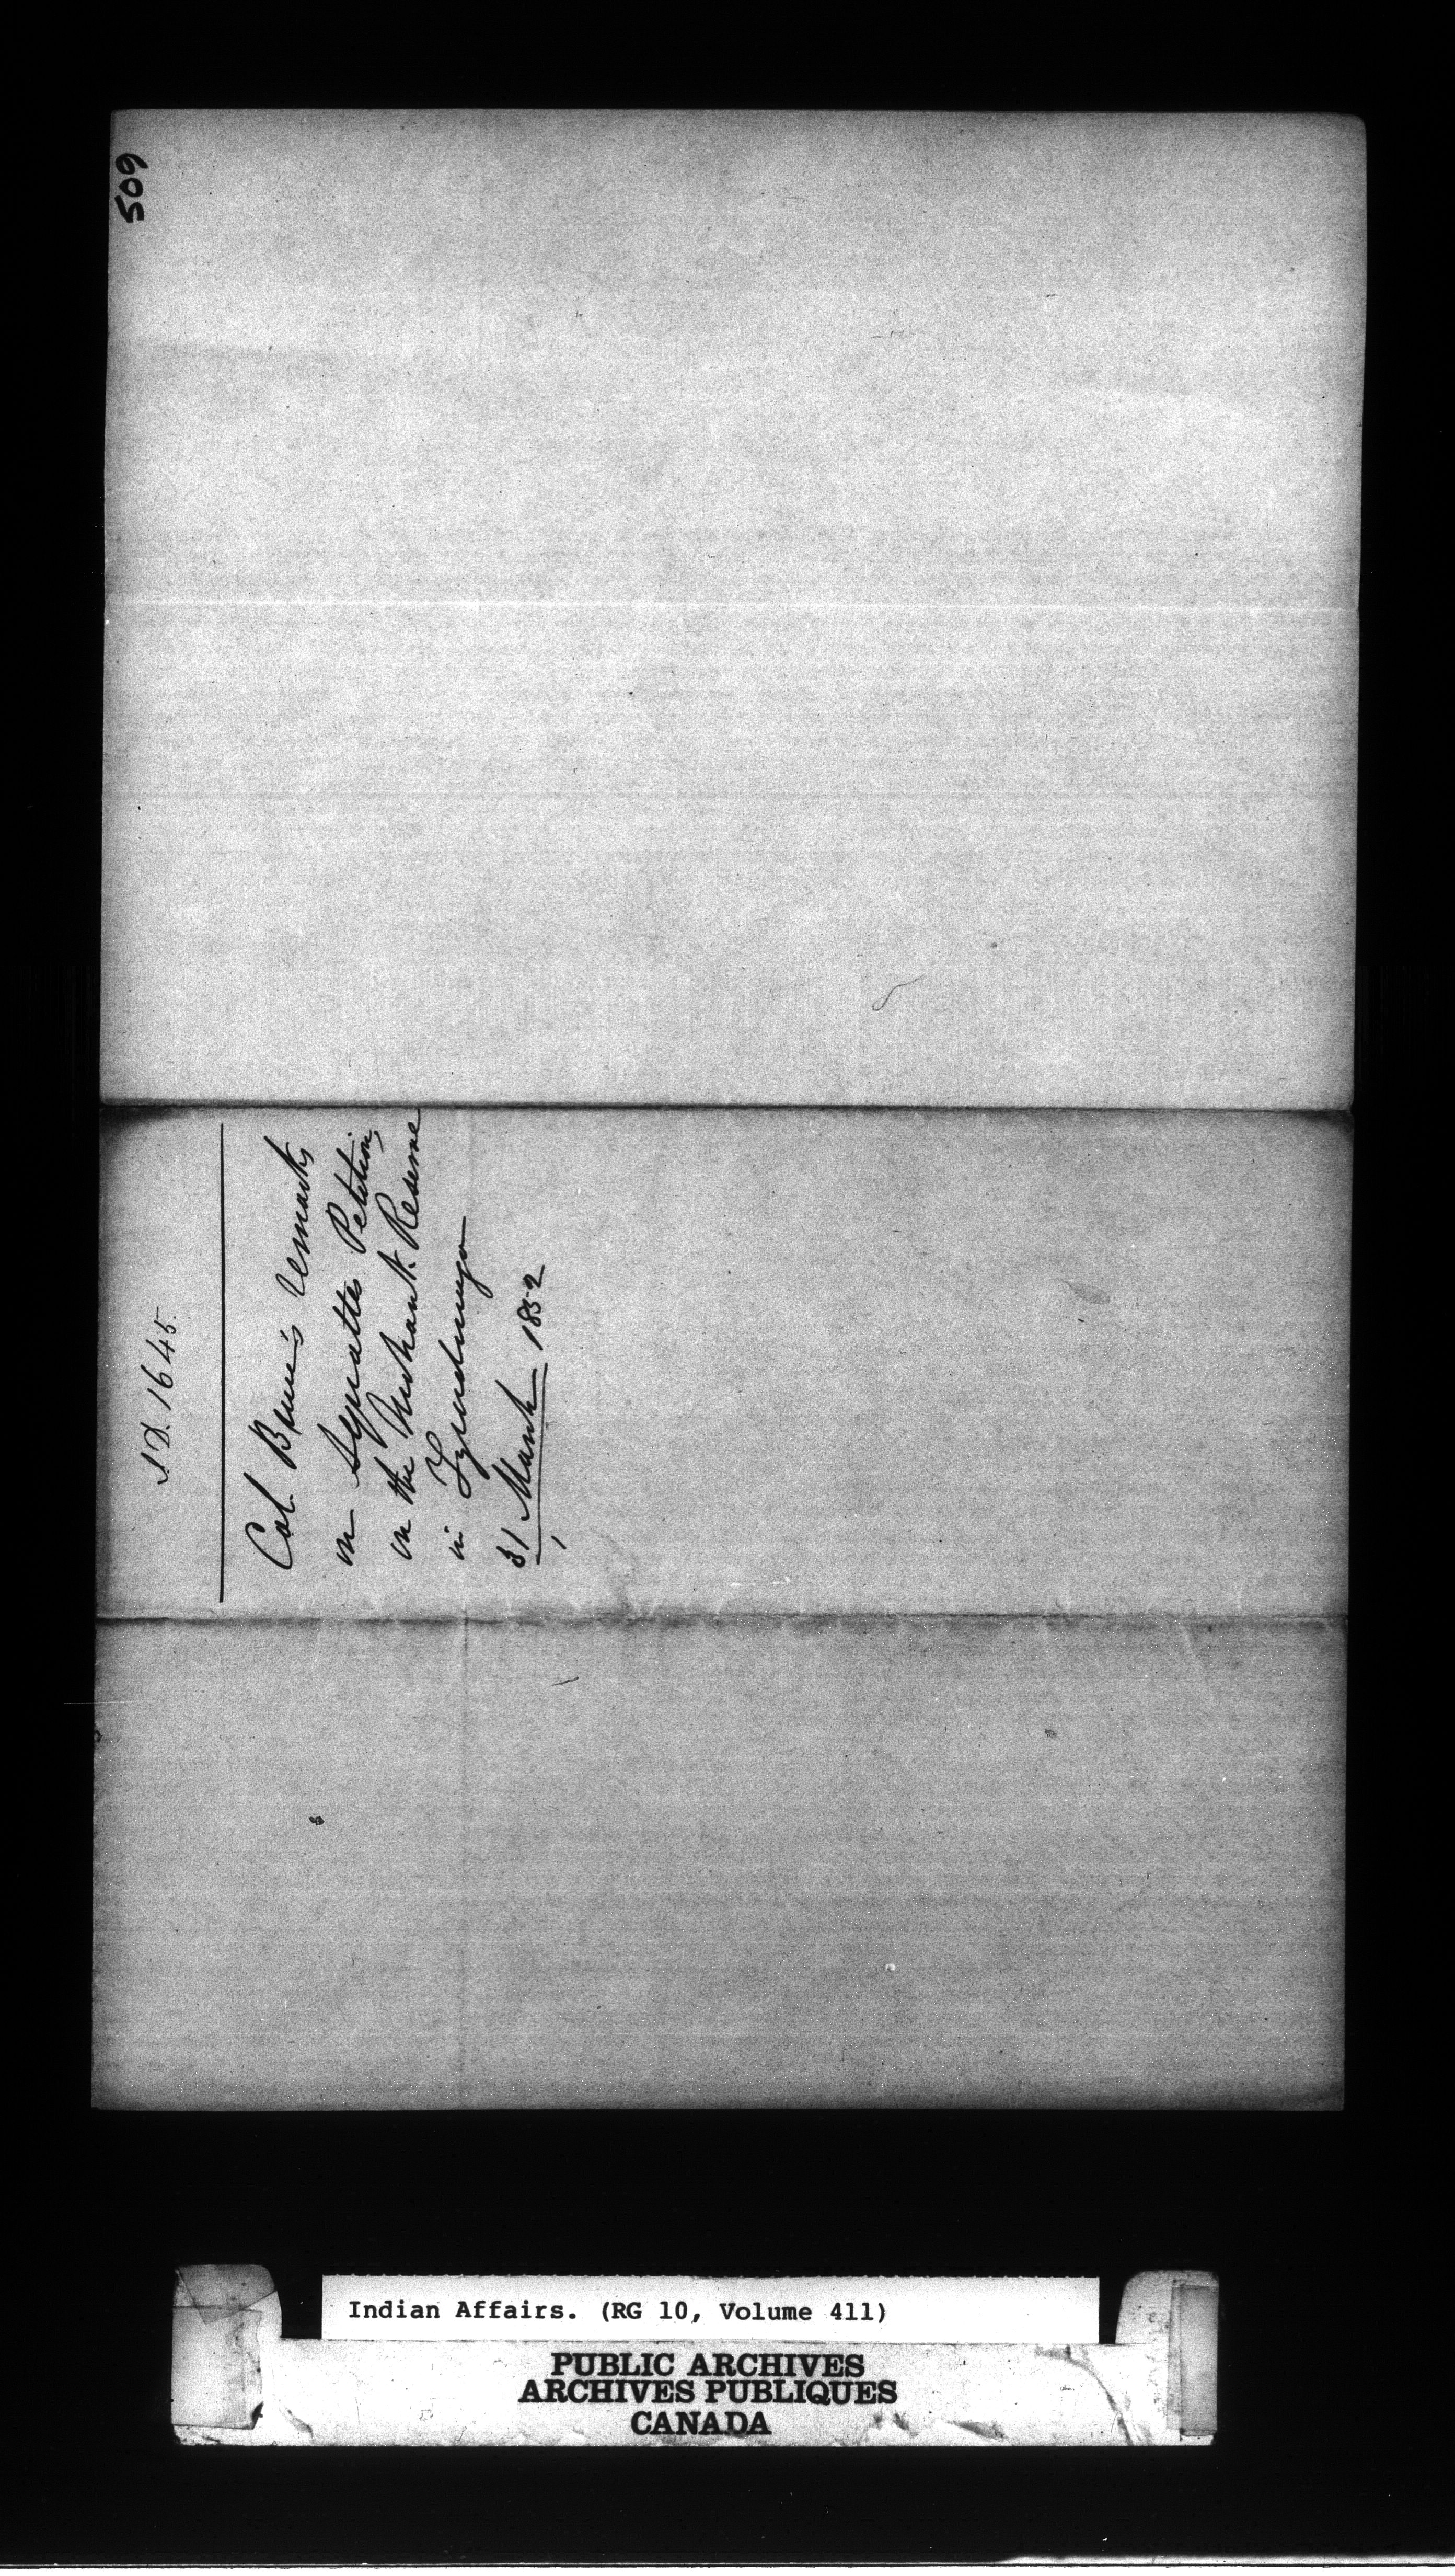 509
I.D. 1645.
Col. Bruce's remarks
on Squatters Petition,
on the Mohawk Reserve
in Tyendinaga
31 March 1852
Indian Affairs. (RG 10, Volume 411)
PUBLIC ARCHIVES
ARCHIVES PUBLIQUES
CANADA